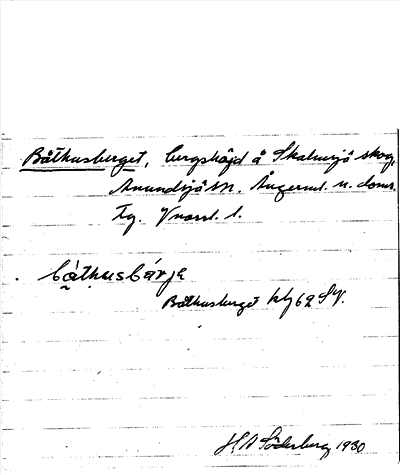 Båthusberget, bergshöjd å Skalmsjö skog,
Anundsjö sn. Ångerml. n. doms.
Tg. Vnorrl. l.
båthusbárja
Båthusberget kbl 62 SV.
H A Söderberg 1930